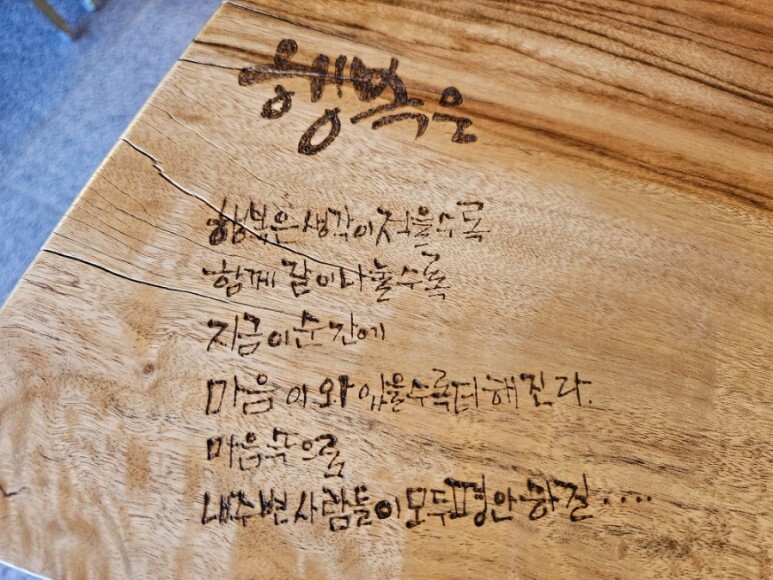 행복은
행복은 생각이 적을수록
함께 같이 나눌수록
지금 이 순간에
마음이 와 있을수록 더해진다.
마음속으로
내주변 사람들이 모두 평안하길....